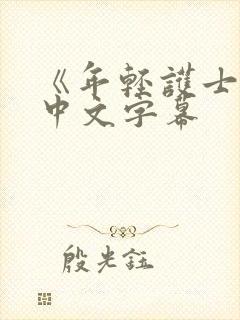 《年轻護士
中文字幕
殷光鈺